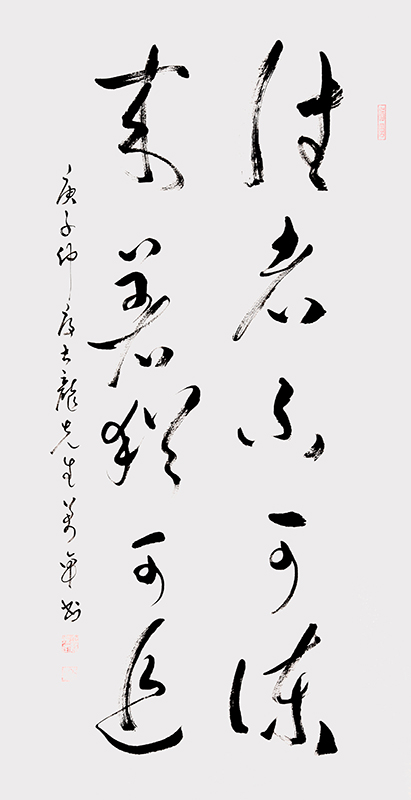 往者不可諫
來者猶可追
庚子仲夏龍先生書